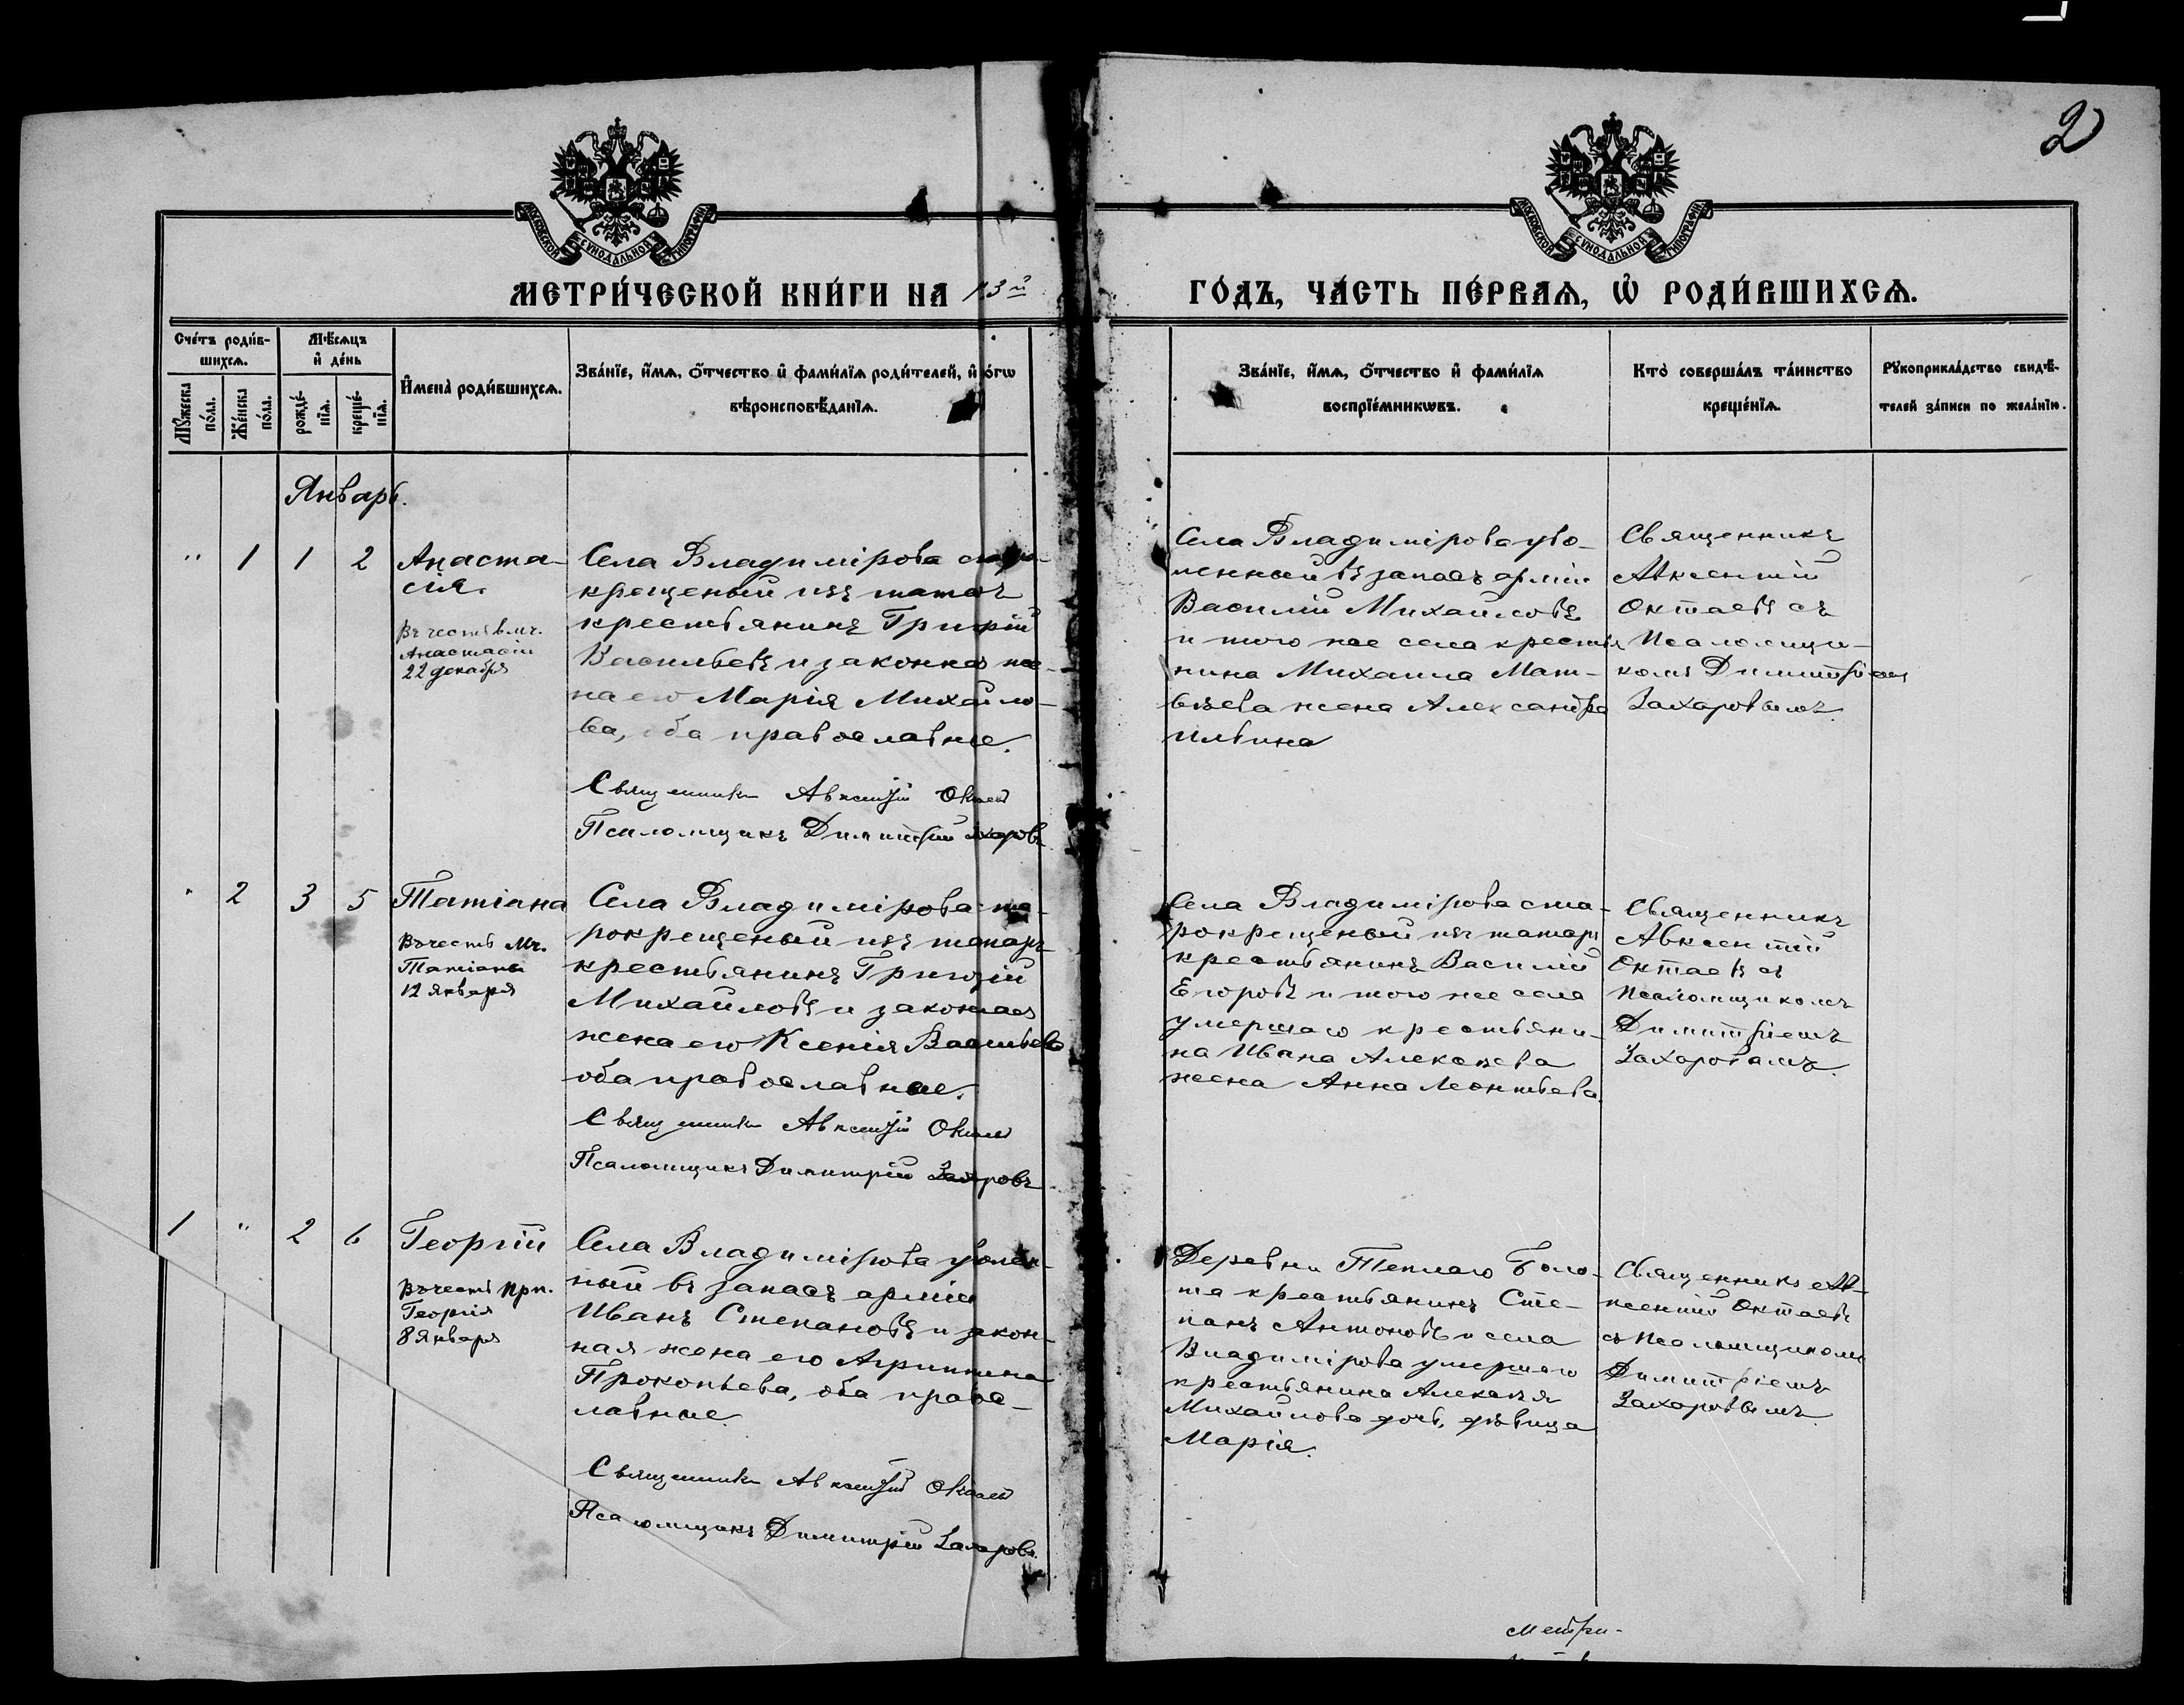 2
МОСКОВСКОЙ СѴНОДАЛЬНОЙ ТИПОГРАФІИ
МОСКОВСКОЙ СѴНОДАЛЬНОЙ ТИПОГРАФІИ
МЕТРИ́ЧЕСКОЙ КНИ́ГИ НА 13й ГО́ДЪ, ЧА́СТЬ ПЕ́РВАѦ, Ѡ҆ РОДИ́ВШИХСѦ.
Сче́тъ роди́в-
шихсѧ.
Мꙋ́жеска по́ла.
Же́нска по́ла.
Мѣ́сѧцъ
и҆ де́нь
рожде́-
нїѧ.
креще́-
нїѧ.
И҆мена̀ роди́вшихсѧ.
Зва́нїе, и҆́мѧ, ѻ҆́тчество и҆ фами́лїѧ роди́телей, и҆ ко́гѡ
вѣроисповѣ́данїѧ.
Зва́нїе, и҆́мѧ, ѻ҆́тчество и҆ фами́лїѧ
воспрїе́мникѡвъ.
Кто̀ соверша́лъ та́инство
креще́нїѧ.
Рꙋкоприкла́дство свидѣ́-
телей за́писи по жела́нїю.
Январь.
" 1 1 2
Анаста-
сія.
Въ честь влмч.
Анастасіи
22 декабря
Села Владимірова старо-
крещеный изъ татаръ
крестьянинъ Григорій
Васильевъ и законная же-
на его Марія Михайло-
ва, оба православные.
Священникъ Авксентій Октаевъ
Псаломщикъ Димитрій Захаровъ
Села Владимірова уво-
ленный въ запасъ арміи
Василій Михайловъ
и того же села крестья
нина Михаила Мат-
вѣева жена Александра
Ильина
Священникъ
Авксентій
Октаевъ съ
Псаломщи-
комъ Димитріемъ
Захаровымъ.
" 2 3 5
Татіана
Въ честь Мч.
Татіаны
12 января
Села Владимірова ста-
рокрещеный изъ татаръ
крестьянинъ Григорій
Михайловъ и законная
жена его Ксенія Васильева
оба православные.
Священникъ Авксентій Октаевъ
Псаломщикъ Димитрій Захаровъ
Села Владимірова ста-
рокрещеный изъ татаръ
крестьянинъ Василій
Егоровъ и того же села
умершаго крестьяни-
на Ивана Алексѣева
жена Анна Леонтьева.
Священникъ
Авксентій
Октаевъ съ
Псаломщикомъ
Димитріемъ
Захаровымъ.
1 " 2 6
Георгій
Въ честь прп.
Георгія
8 января
Села Владимірова уволен-
ный въ запасъ арміи
Иванъ Степановъ и закон-
ная жена его Агриппина
Прокопьева, оба правос-
лавные.
Священникъ Авксентій Октаевъ
Псаломщикъ Димитрій Захаровъ.
Деревни Теплаго Боло-
та крестьянинъ Сте-
панъ Антоновъ и села
Владимірова умершаго
крестьянина Алексѣя
Михайлова дочь, дѣвица
Марія.
Священникъ Ав-
ксентій Октаевъ
съ Псаломщикомъ
Димитріемъ
Захаровымъ.
Метри-